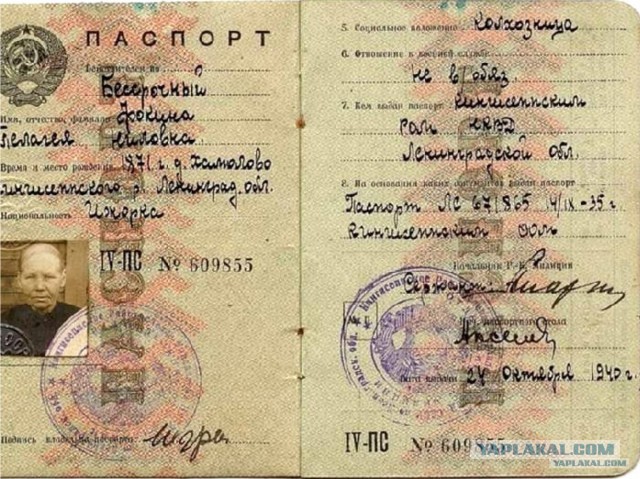 ПАСПОРТ
Действителен на
Бессрочный
Фокина
Имя, отчество, фамилия
Пелагея Ниловка
Время и место рождения 1871 г. д. Хамолово
Кингисеппского р. Ленинград. обл.
Национальность
Ижорка
IV-ПС № 609855
Подпись владельца паспорта
5. Социальное положение Колхозница
6. Отношение к военной службе
не в/обяз.
7. Кем выдан паспорт Кингисеппским
РОМ НКВД
Ленинградской обл.
8. На основании каких документов выдан паспорт
Паспорт ЛС 67/865 14/IX-35 г
Кингисеппским РОМ
Начальник Р.-К. Милиции
Сержант
паспортного стола
24 октября 1940 г.
IV-ПС № 609855
YAPLAKAL.COM
YAPLAKAL.COM